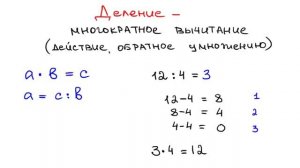 Деление –
многократное вычитание
(действие, обратное умножению)
a · b = c
a = c : b
12 : 4 = 3
12 – 4 = 8 1
8 – 4 = 4 2
4 – 4 = 0 3
3 · 4 = 12